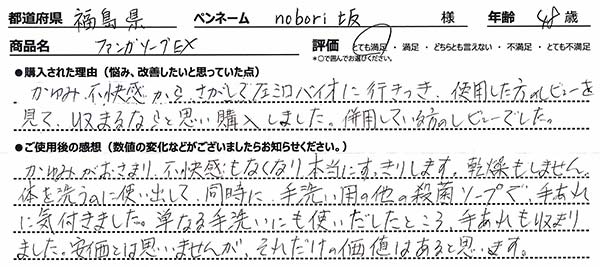 都道府県 福島県 ペンネーム nobori坂 様 年齢 48 歳
商品名 ファンガソープEX 評価 とても満足 ・ 満足 ・ どちらとも言えない ・ 不満足 ・ とても不満足
*○で囲んでお選びください。
●購入された理由（悩み、改善したいと思っていた点）
かゆみ、不快感から、さがして左ミロバイオに行きつき、使用した方のレビューを
見て、収まるならと思い購入しました。併用している方のレビューでした。
●ご使用後の感想（数値の変化などがございましたらお知らせください。）
かゆみがおさまり、不快感もなくなり本当にすっきりします。乾燥もしません。
体を洗うのに使い出して、同時に、手洗い用の他の殺菌ソープで、手あれ
に気付きました。単なる手洗いにも使いだしたところ、手あれも収まり
ました。安価とは思いませんが、それだけの価値はあると思います。